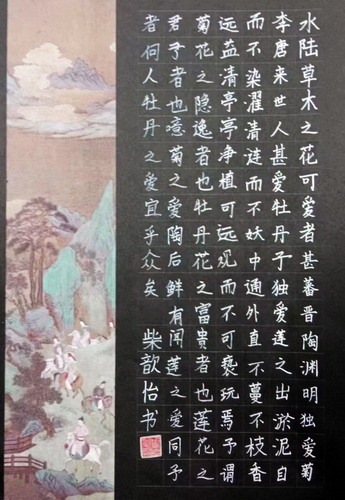 水陆草木之花可爱者甚蕃晋陶渊明独爱菊
李唐来世人甚爱牡丹予独爱莲之出淤泥自
而不染濯清涟而不妖中通外直不蔓不枝香
远益清亭亭净植可远观而不可亵玩焉予谓
菊花之隐逸者也牡丹花之富贵者也莲花之
君子者也噫菊之爱陶后鲜有闻莲之爱同予
者何人牡丹之爱宜乎众矣 柴歆怡书